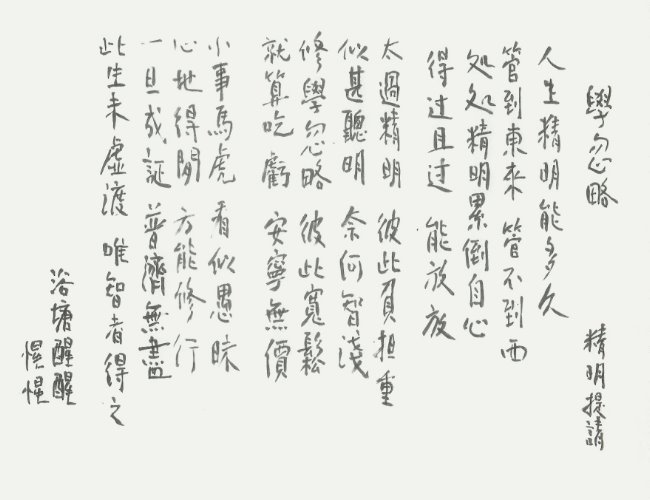 學忽略
精明提請
人生精明能多久
管到東来 管不到西
処処精明累倒自心
得过且过 能放放
太過精明 彼此負担重
似甚聽明 奈何智淺
修學忽略 彼此寬鬆
就算吃虧 安寧無價
小事馬虎 看似愚昧
心地得閒 方能修行
一旦成証 普濟無盡
此生未虛渡 唯智者得之
浴塘醒醒
惺惺